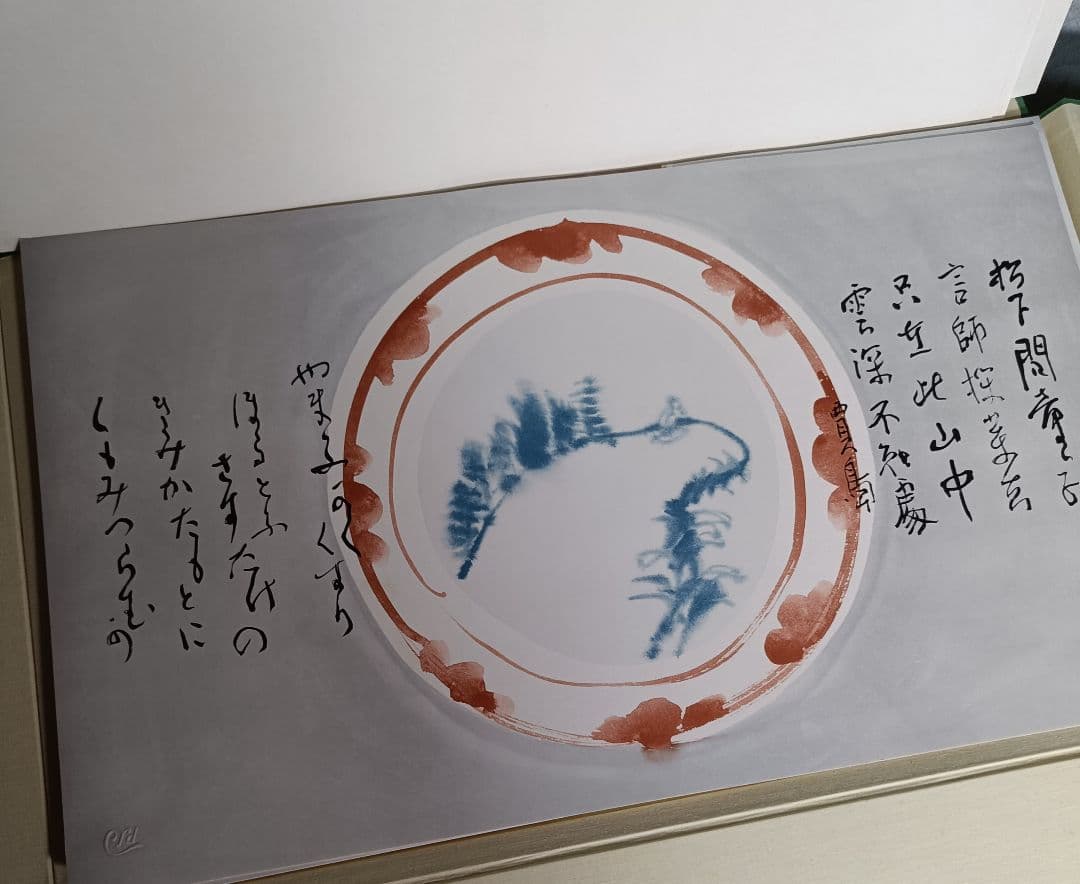 松下問童子
言師採薬去
只在此山中
雲深不知處
賈島
やまふかくくすり
ほるとふ
さすたけの
きみかたもとに
くもみつらむか